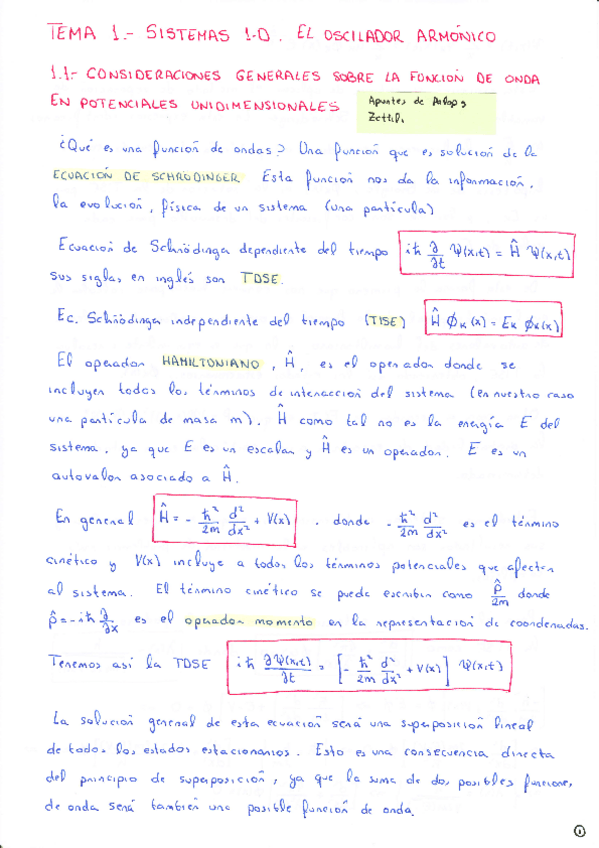 TEMA 1.- SISTEMAS 1-D. EL OSCILADOR ARMÓNICO
1.1- CONSIDERACIONES GENERALES SOBRE LA FUNCIÓN DE ONDA
EN POTENCIALES UNIDIMENSIONALES
Apuntes de
Zettili
¿Qué es una función de ondas? Una función que es solución de la
ECUACIÓN DE SCHRÖDINGER Esta función nos da la información,
la evolución, física de un sistema (una partícula)
Ecuación de Schrödinger dependiente del tiempo iħ ∂/∂t Ψ(x,t) = Ĥ Ψ(x,t)
sus siglas en inglés son TDSE.
Ec. Schrödinger independiente del tiempo (TISE) Ĥ ϕₖ(x) = Eₖ ϕₖ(x)
El operador HAMILTONIANO, Ĥ, es el operador donde se
incluyen todos los términos de interacción del sistema (en nuestro caso
una partícula de masa m). Ĥ como tal no es la energía E del
sistema, ya que E es un escalar y Ĥ es un operador. E es un
autovalor asociado a Ĥ.
En general Ĥ = - ħ²/2m d²/dx² + V(x) . donde - ħ²/2m d²/dx² es el término
cinético y V(x) incluye a todos los términos potenciales que afecten
al sistema. El término cinético se puede escribir como p̂/2m donde
p̂ = -iħ ∂/∂x es el operador momento en la representación de coordenadas.
Tenemos así la TDSE iħ ∂Ψ(x,t)/∂t = [- ħ²/2m d²/dx² + V(x)] Ψ(x,t)
La solución general de esta ecuación será una superposición lineal
de todos los estados estacionarios. Esto es una consecuencia directa
del principio de superposición, ya que la suma de dos posibles funciones
de onda será también una posible función de onda.
1